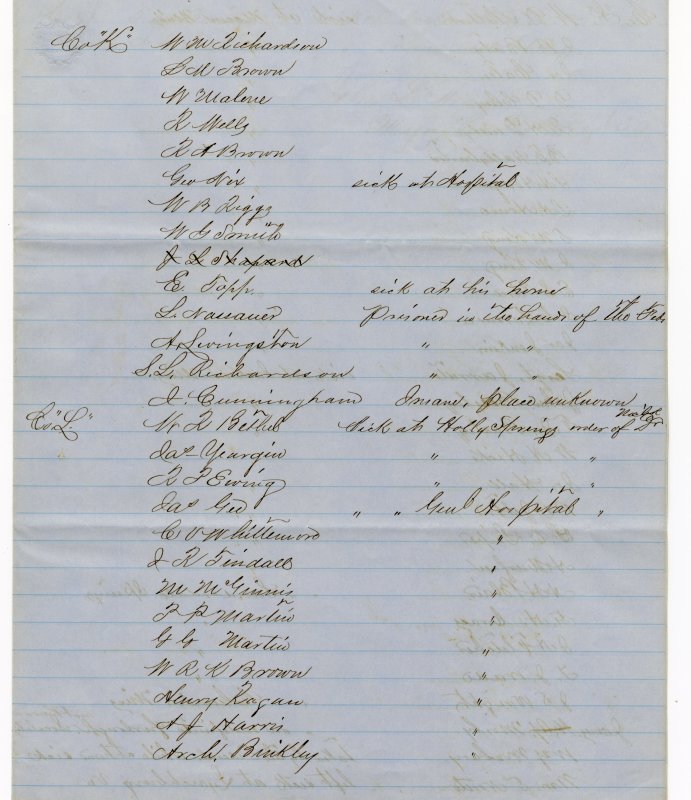 Co "K" W M Richardson
L M Brown
W Malone
R Wells
R A Brown
Geo Nix sick at Hospital
W B Riggs
W G Smith
J L Shapard
E. Topp. sick at his home
L. Nassauer Prisoner in the hands of the Feds
A. Livingston " "
S. L. Richardson " "
J. Cunningham Insane, place unknown
Co "L" W L Bethel Sick at Holly Springs order of Dr
Jas Yeargin " "
R F Ewing " "
Jas Gee " " Genl Hospital "
C V Whittemore "
J R Tindall "
M McGinnis "
T P Martin "
G G Martin "
W R K Brown "
Henry Ragan "
A J Harris "
Arch. Binkley "